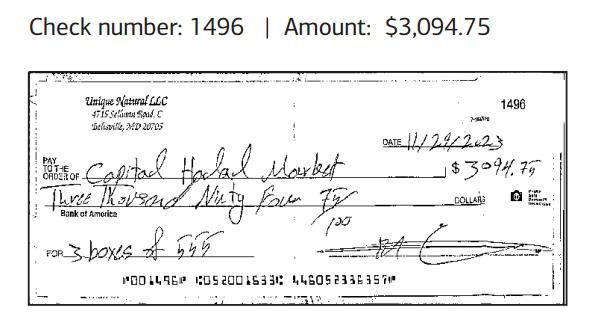 Check number: 1496 | Amount: $3,094.75
Unique Natural LLC
4715 Sellman Road, C
Beltsville, MD 20705
1496
DATE 11/29/2023
PAY TO THE ORDER OF Capital Halal Market $3094.75
Three Thousand Ninty Four 75/100 DOLLARS
Bank of America
FOR 3 boxes of 555
⑈001496⑈ ⑆052001633⑆ 446052336357⑈